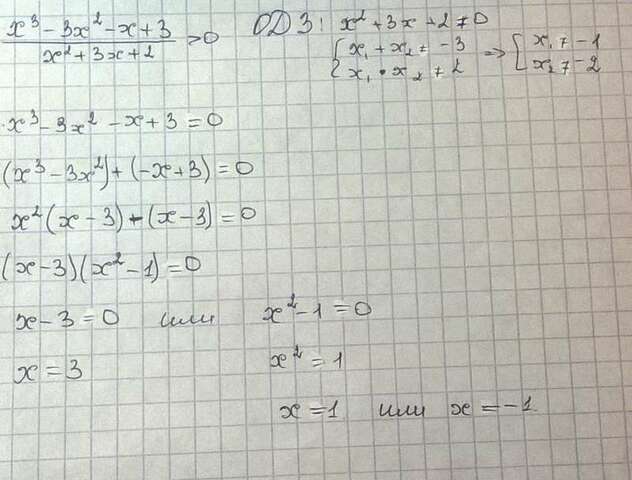 (x³ - 3x² - x + 3)/(x² + 3x + 2) > 0 ОДЗ: x² + 3x + 2 ≠ 0
{ x₁ + x₂ ≠ -3 => { x₁ ≠ -1
{ x₁ • x₂ ≠ 2 { x₂ ≠ -2
x³ - 3x² - x + 3 = 0
(x³ - 3x²) + (-x + 3) = 0
x²(x - 3) - (x - 3) = 0
(x - 3)(x² - 1) = 0
x - 3 = 0 или x² - 1 = 0
x = 3 x² = 1
x = 1 или x = -1